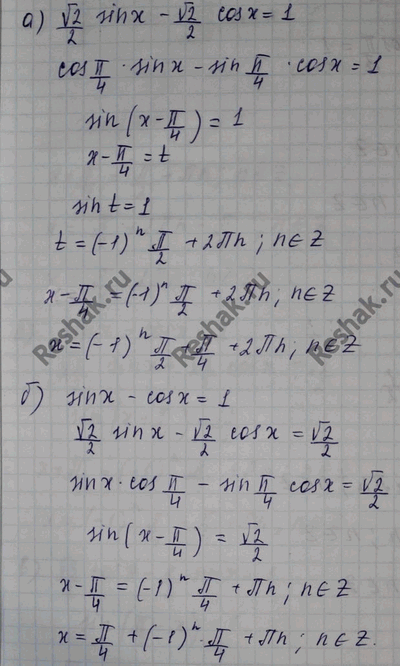 а) √2/2 sinx - √2/2 cosx = 1
cos π/4 · sinx - sin π/4 · cosx = 1
sin(x - π/4) = 1
x - π/4 = t
sin t = 1
t = (-1)^n π/2 + 2πn; n∈Z
x - π/4 = (-1)^n π/2 + 2πn; n∈Z
x = (-1)^n π/2 + π/4 + 2πn; n∈Z
б) sinx - cosx = 1
√2/2 sinx - √2/2 cosx = √2/2
sinx · cos π/4 - sin π/4 cosx = √2/2
sin(x - π/4) = √2/2
x - π/4 = (-1)^n π/4 + πn; n∈Z
x = π/4 + (-1)^n · π/4 + πn; n∈Z.
Reshak.ru
Reshak.ru
Reshak.ru